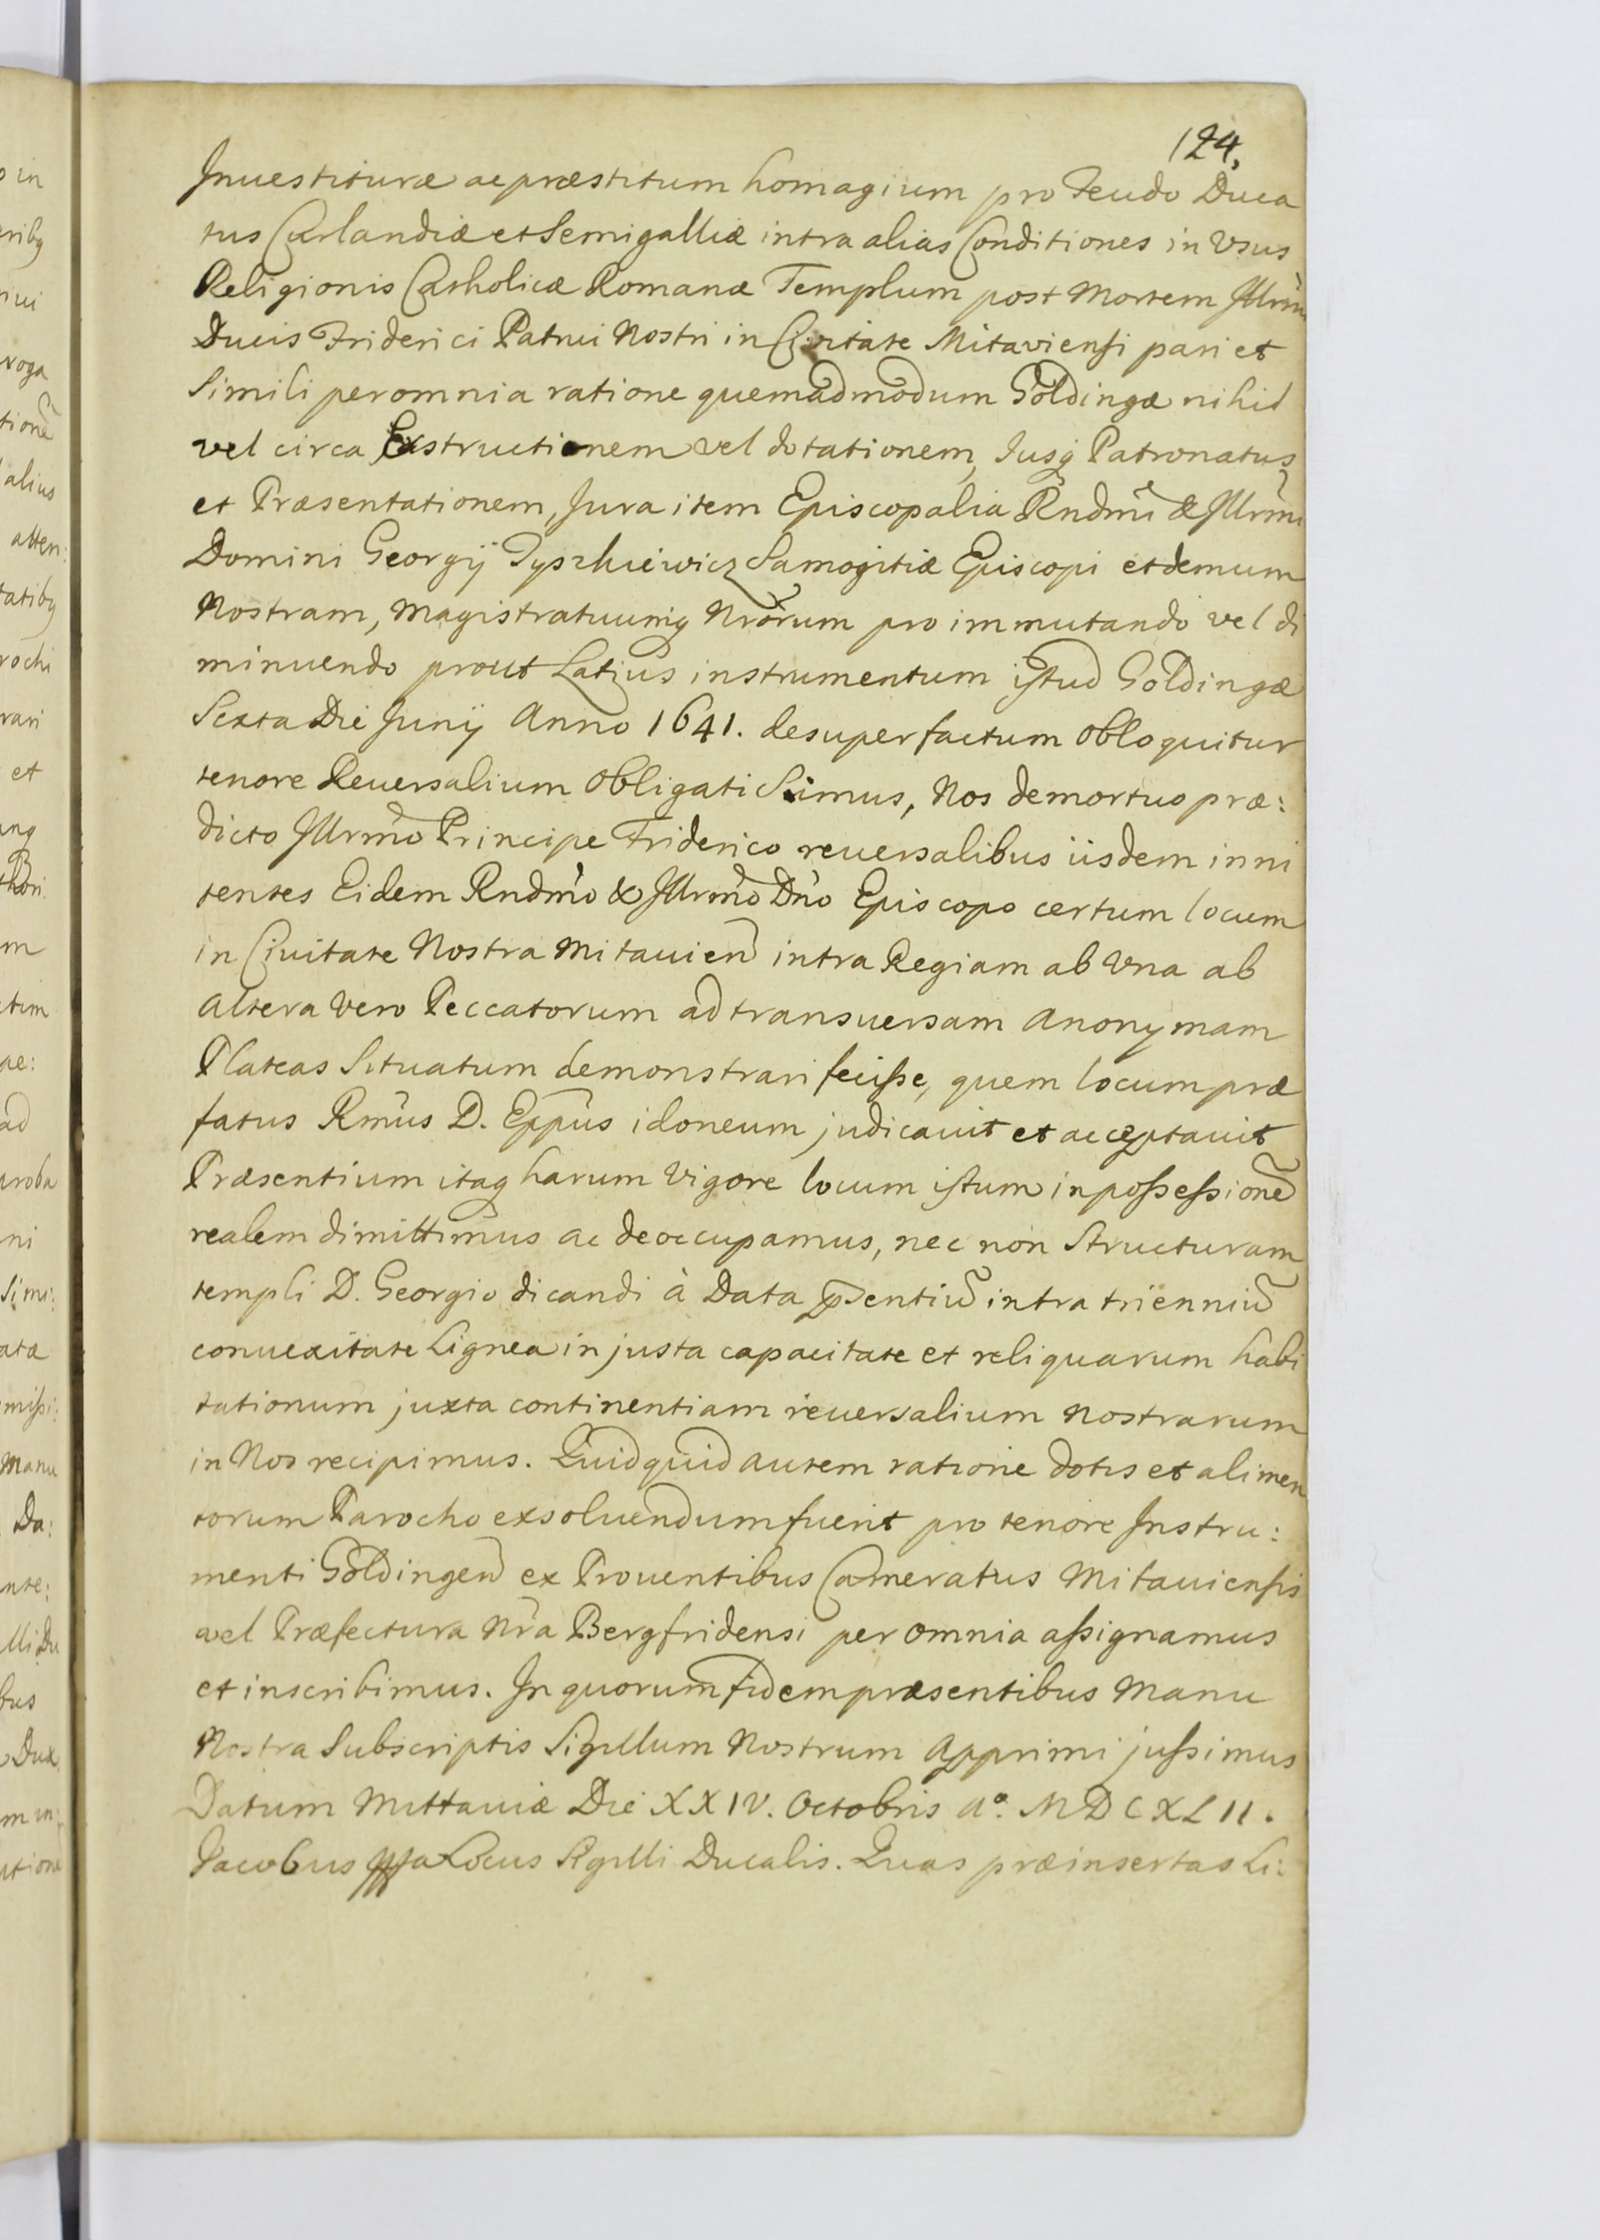 124.
Inuestituræ ac præstitum homagium pro Feudo Duca
tus Curlandiæ et Semigalliæ intra alias Conditiones in Vsus
Religionis Catholicæ Romanæ Templum post Mortem Illrmi
Ducis Friderici Patrui Nostri in Ciuitate Mitaviensi pari et
Simili per omnia ratione quemadmodum Goldingæ nihil
vel circa Exstructionem vel dotationem, Jusq Patronatus
et Præsentationem, Jura item Episcopalia Rndmi & Illrmi
Domini Georgij Tyszkiewicz Samogitiæ Episcopi et demum
Nostram, Magistratuumq Nrorum pro immutando vel di
minuendo prout Latius instrumentum istud Goldingæ
Sexta Die Junij Anno 1641. desuper factum obloquitur
tenore Reuersalium Obligati Simus, Nos demortuo præ:
dicto Illrmo Principe Friderico reuersalibus iisdem inni
tentes Eidem Rndmo & Illrmo Dno Episcopo certum locum
in Ciuitate Nostra Mitauien intra Regiam ab Vna ab
Altera Vero Peccatorum ad transuersam Anonymam
Plateas Situatum demonstrari fecisse, quem locum præ
fatus Rmus D. Eppus idoneum judicauit et acceptauit
Præsentium itaq harum Vigore locum istum in possessione
realem dimittimus ac deoccupamus, nec non Structuram
templi D. Georgio dicandi à Data psentiu intra trienniu
conuexitate Lignea in justa capacitate et reliquarum habi
tationum juxta continentiam reuersalium Nostrarum
in Nos recipimus. Quidquid autem ratione dotis et alimen
torum Parocho exsoluendum fuerit pro tenore Instru:
menti Goldingen ex Prouentibus Cameratus Mitauiensis
vel Præfectura Nra Bergfridensi per omnia assignamus
et inscribimus. In quorum fidem præsentibus Manu
Nostra Subscriptis Sigillum Nostrum Apprimi jussimus
Datum Mittauiæ Die XXIV. Octobris Aº. MDCXLII.
Jacobus Locus Sigilli Ducalis. Quas præinsertas Li: